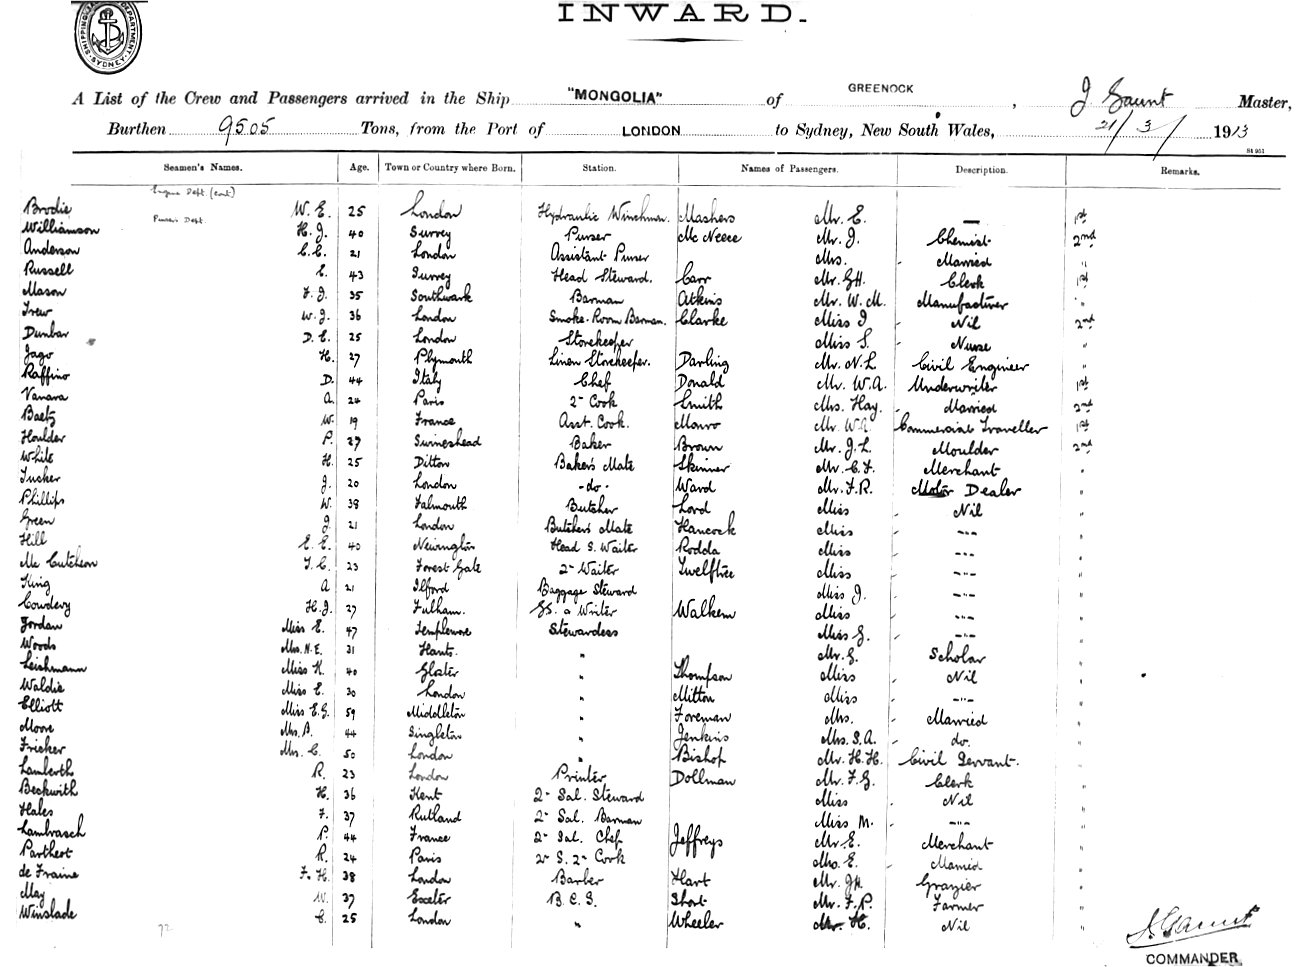 SHIPPING MASTER'S DEPARTMENT SYDNEY
INWARD.
A List of the Crew and Passengers arrived in the Ship "MONGOLIA" of GREENOCK, J. Gaunt Master,
Burthen 9505 Tons, from the Port of LONDON to Sydney, New South Wales, 21/3/1913
St 951
Seamen's Names. Age. Town or Country where Born. Station. Names of Passengers. Description. Remarks.
Engine Dept. (cont)
Brodie W. E. 25 London Hydraulic Winchman. Mashers Mr. E. — 1st
Purser's Dept.
Williamson H. J. 40 Surrey Purser Mc Neece Mr. J. Chemist 2nd
Anderson C. C. 21 London Assistant Purser Mrs. Married "
Russell C. 43 Surrey Head Steward. Carr Mr. G.H. Clerk 1st
Mason F. J. 35 Southwark Barman Atkins Mr. W. M. Manufacturer "
Trew W. J. 36 London Smoke-Room Barman. Clarke Miss I Nil 2nd
Dunbar D. E. 25 London Storekeeper Miss S. Nurse "
Jago H. 27 Plymouth Linen Storekeeper. Darling Mr. N. L Civil Engineer "
Raffino D. 44 Italy Chef Donald Mr. W. A. Underwriter 1st
Vanara A. 24 Paris 2- Cook Smith Mrs. Hay. Married 2nd
Baetz W. 19 France Asst. Cook. Monro Mr. W.A. Commercial Traveller 1st
Houlder P. 27 Swineshead Baker Brown Mr. J. L. Moulder 2nd
White H. 25 Ditton Baker's Mate Skinner Mr. C. F. Merchant "
Tucker J. 20 London -do- Ward Mr. F. R. Motor Dealer "
Phillips W. 38 Falmouth Butcher Lord Miss Nil "
Green J. 21 London Butcher's Mate Hancock Miss -"- "
Hill E. E. 40 Newington Head S. Waiter Rodda Miss -"- "
Mc Cutcheon T. C. 23 Forest Gate 2- Waiter Twelftree Miss -"- "
King A 21 Ilford Baggage Steward Miss J. -"- "
Cowdery H. J. 27 Fulham. G.S. a Writer Walkem Miss -"- "
Jordan Miss E. 47 Templemore Stewardess Miss G. -"- "
Woods Mrs. N. E. 31 Hants. " Mr. G. Scholar "
Leishmann Miss K. 40 Gloster " Thompson Miss Nil "
Waldie Miss E. 30 London " Mitton Miss -"- "
Elliott Miss E. G. 59 Middleton " Foreman Mrs. Married "
Moore Mrs. B. 44 Singleton " Jenkins Mrs. S. A. do. "
Fricker Mrs. C. 50 London " Bishop Mr. H. H. Civil Servant. "
Lamberth R. 23 London Printer Dollman Mr. F. G. Clerk "
Beckwith H. 36 Kent 2- Sal. Steward Miss Nil "
Hales F. 37 Rutland 2- Sal. Barman Miss M. -"- "
Lambrasch P. 44 France 2- Sal. Chef Jeffreys Mr. E. Merchant "
Parthest R. 24 Paris 2- S. 2- Cook Mrs. E. Married "
de Fraine F. H. 38 London Barber Hart Mr. J.H. Grazier "
May W. 37 Exeter B. C. S. Short Mr. F. P. Farmer "
Winslade C. 25 London " Wheeler Mr. H. Nil "
J. Gaunt
COMMANDER